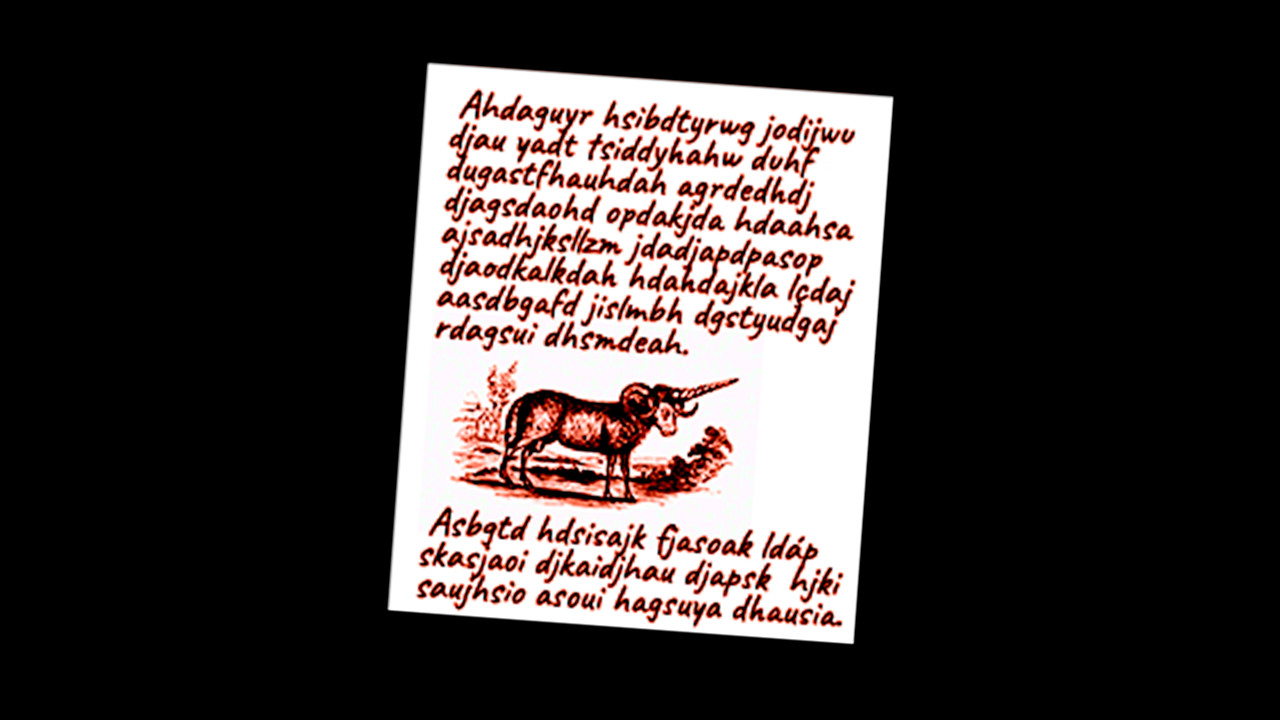 Ahdaguyr hsibdtyrwg jodijwu
djau yadt tsiddyhahw duhf
dugastfhauhdah agrdedhdj
djagsdaohd opdakjda hdaahsa
ajsadhjksllzm jdadjapdpasop
djaodkalkdah hdahdajkla lçdaj
aasdbgafd jislmbh dgstyudgaj
rdagsui dhsmdeah.
Asbgtd hdsisajk fjasoak ldáp
skasjaoi djkaidjhau djapsk hjki
saujhsio asoui hagsuya dhausia.